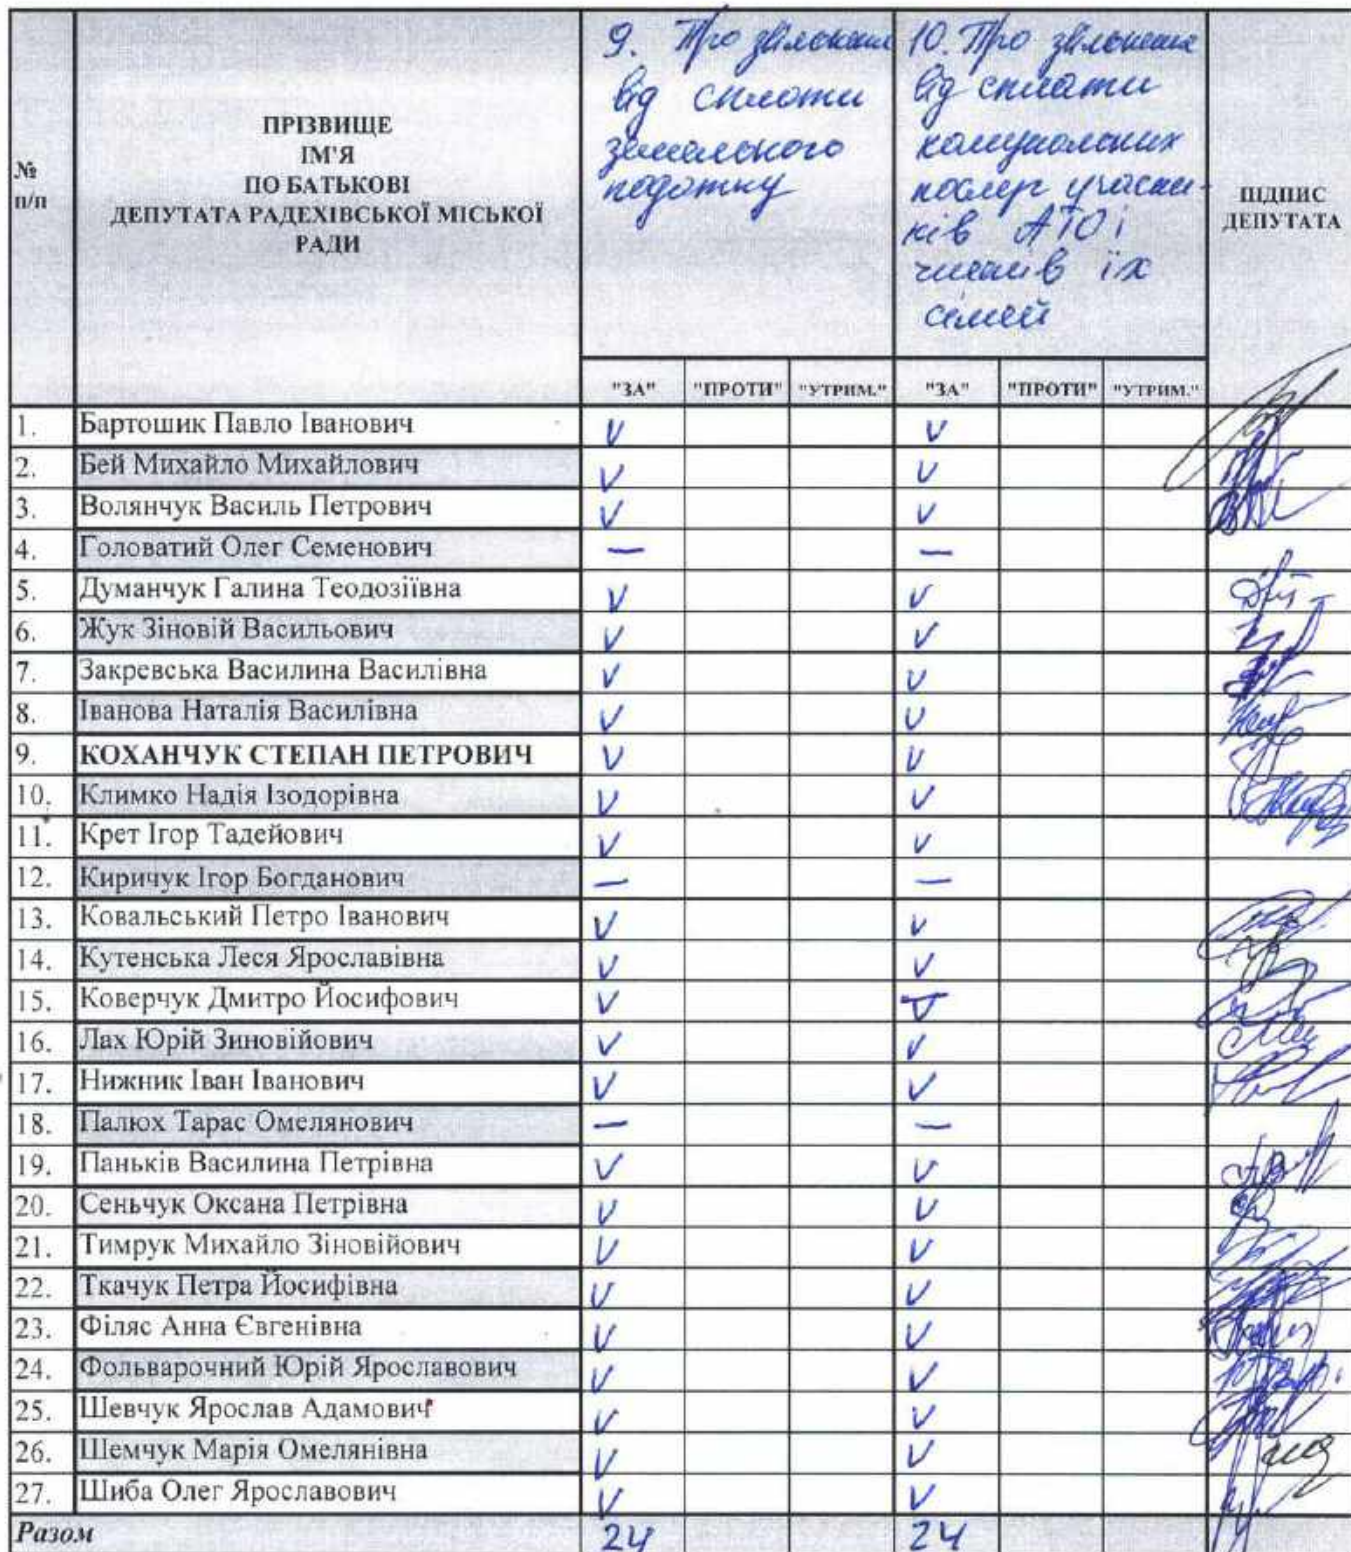 №
п/п
ПРІЗВИЩЕ
ІМ'Я
ПО БАТЬКОВІ
ДЕПУТАТА РАДЕХІВСЬКОЇ МІСЬКОЇ
РАДИ
9. Про звільнення
від сплати
земельного
податку
10. Про звільнення
від сплати
комунальних
послуг учасни-
ків АТО і
членів їх
сімей
ПІДПИС
ДЕПУТАТА
"ЗА" "ПРОТИ" "УТРИМ." "ЗА" "ПРОТИ" "УТРИМ."
1. Бартошик Павло Іванович V V
2. Бей Михайло Михайлович V V
3. Волянчук Василь Петрович V V
4. Головатий Олег Семенович — —
5. Думанчук Галина Теодозіївна V V
6. Жук Зіновій Васильович V V
7. Закревська Василина Василівна V V
8. Іванова Наталія Василівна V V
9. КОХАНЧУК СТЕПАН ПЕТРОВИЧ V V
10. Климко Надія Ізодорівна V V
11. Крет Ігор Тадейович V V
12. Киричук Ігор Богданович — —
13. Ковальський Петро Іванович V V
14. Кутенська Леся Ярославівна V V
15. Коверчук Дмитро Йосифович V V
16. Лах Юрій Зиновійович V V
17. Нижник Іван Іванович V V
18. Палюх Тарас Омелянович — —
19. Паньків Василина Петрівна V V
20. Сеньчук Оксана Петрівна V V
21. Тимрук Михайло Зіновійович V V
22. Ткачук Петра Йосифівна V V
23. Філяс Анна Євгенівна V V
24. Фольварочний Юрій Ярославович V V
25. Шевчук Ярослав Адамович V V
26. Шемчук Марія Омелянівна V V
27. Шиба Олег Ярославович V V
Разом 24 24